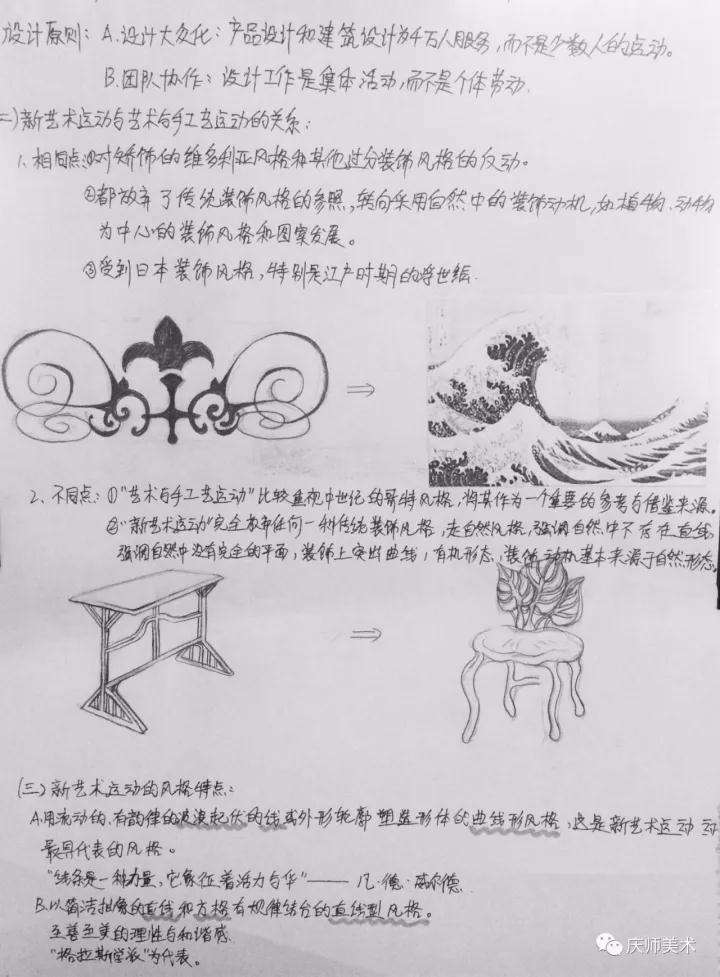 设计原则：A.设计大众化：产品设计和建筑设计为千万人服务，而不是少数人的运动。
B.团队协作：设计工作是集体活动，而不是个体劳动.
二)新艺术运动与艺术与手工艺运动的关系：
1、相同点:①对矫饰的维多利亚风格和其他过分装饰风格的反动。
②都放弃了传统装饰风格的参照，转向采用自然中的装饰动机，如植物、动物
为中心的装饰风格和图案发展。
③受到日本装饰风格，特别是江户时期的浮世绘.
2、不同点：①"艺术与手工艺运动"比较重视中世纪的哥特风格，将其作为一个重要的参考与借鉴来源。
②"新艺术运动"完全放弃任何一种传统装饰风格，走自然风格，强调自然中不存在直线
强调自然中没有完全的平面，装饰上突出曲线，有机形态，装饰动机基本来源于自然形态。
(三)新艺术运动的风格特点：
A.用流动的、有韵律的波浪起伏的线或外形轮廓塑造形体的曲线形风格，这是新艺术运动
最具代表的风格。
"线条是一种力量，它象征着活力与华"——凡·德·威尔德.
B.以简洁抽象的直线和方格有规律结合的直线型风格。
至善至美的理性与和谐感
"格拉斯学派"为代表。
庆师美术